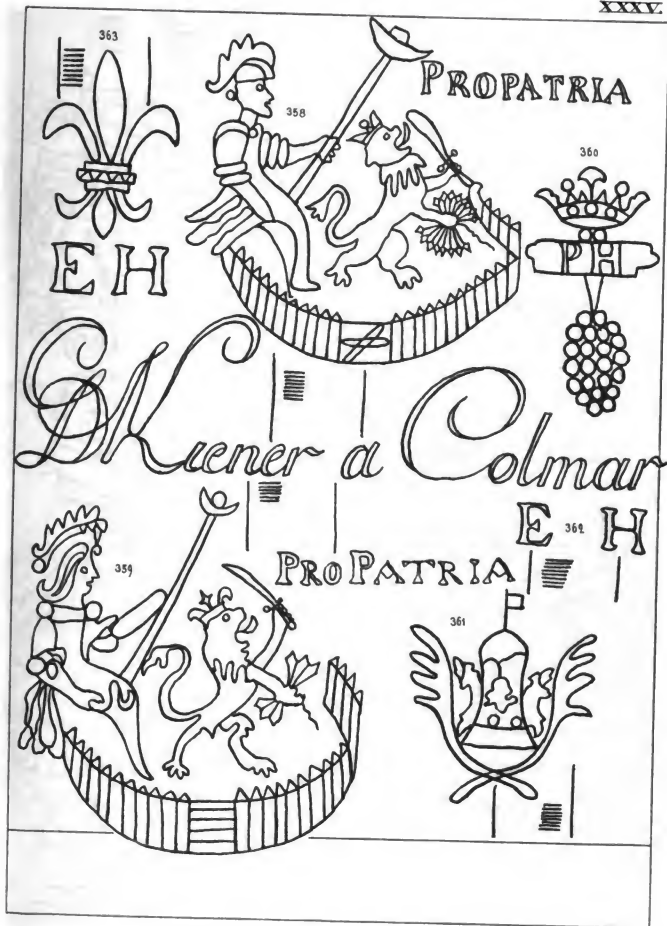 XXXV.
363
358
PROPATRIA
360
E H
P H
a Colmar
359
PRO PATRIA
E 362 H
361